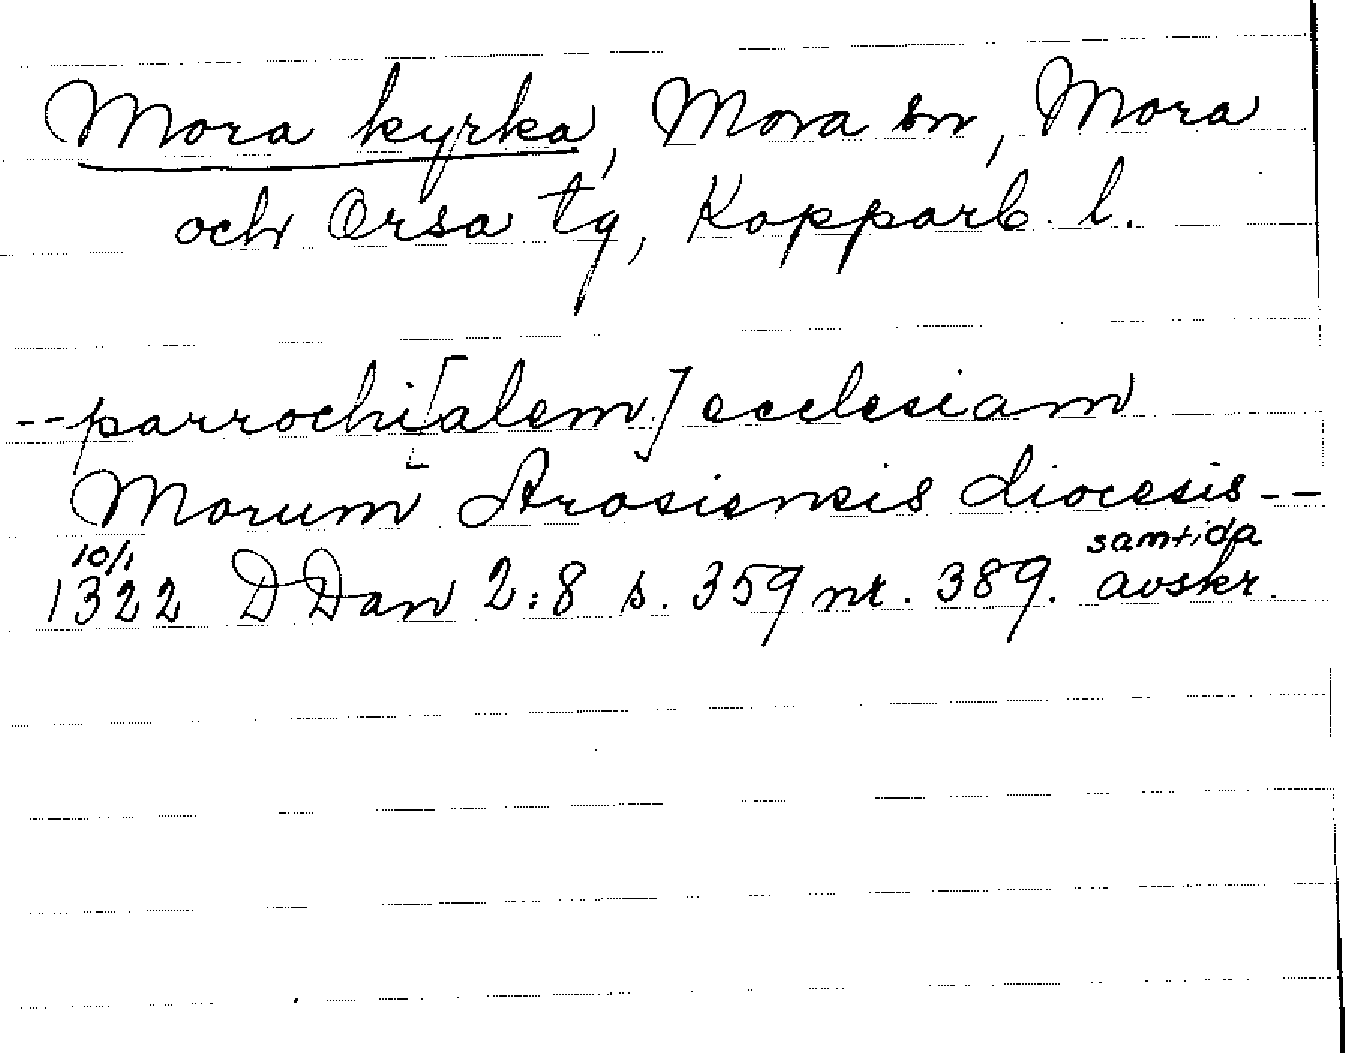 Mora kyrka, Mora sn, Mora
och Orsa tg, Kopparb. l.
--parrochi[alem] ecclesiam
Morum Arosiensis diocesis--
10/1 samtida
1322 DDan 2:8 s. 359 nr. 389. avskr.